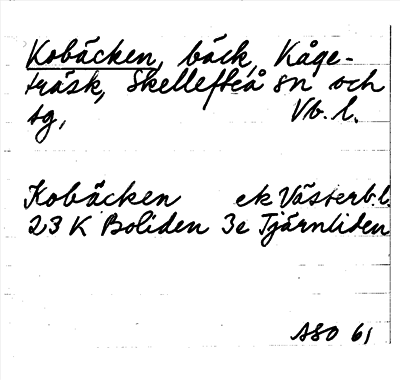 Kobäcken, bäck, Kåge-
träsk, Skellefteå sn och
tg, Vb. l.
Kobäcken ek Västerb.l.
23 K Boliden 3e Tjärnliden
ASO 61